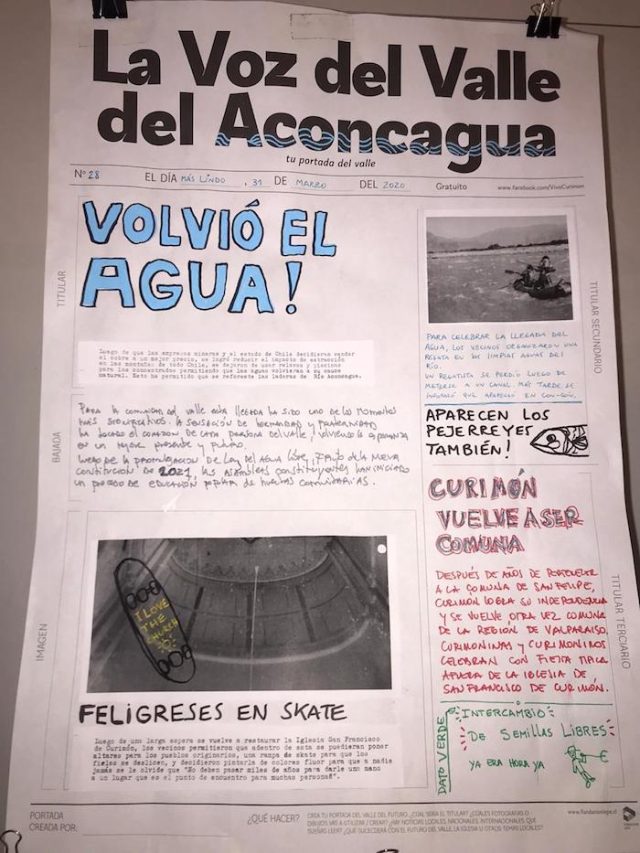 La Voz del Valle
del Aconcagua
tu portada del valle
Nº 28 EL DÍA MÁS LINDO , 31 DE MARZO DEL 2020 Gratuito www.facebook.com/VivoCurimon
TITULAR
VOLVIÓ EL
AGUA!
Luego de que las empresas mineras y el estado de Chile decidieron vender
el cobre a un mejor precio, se logró reducir el impacto de extracción
en las montañas de todo Chile, se dejaron de usar relaves y piscinas
para los concentrados permitiendo que las aguas volvieran a su cauce
natural. Esto ha permitido que se reforeste las laderas de Río Aconcagua.
BAJADA
PARA LA COMUNIDAD DEL VALLE ESTA LLEGADA HA SIDO UNO DE LOS MOMENTOS
MÁS SIGNIFICATIVOS. LA SENSACIÓN DE HERMANDAD Y FRATERNIDAD
HA TOCADO EL CORAZÓN DE CADA PERSONA DEL VALLE, VOLVIENDO LA ESPERANZA
EN UN MEJOR PRESENTE Y FUTURO.
LUEGO DE LA PROMULGACIÓN DE LEY DEL AGUA LIBRE, FRUTO DE LA NUEVA
CONSTITUCIÓN DE 2021, LAS ASAMBLEAS CONSTITUYENTES HAN INICIADO
UN PROCESO DE EDUCACIÓN POPULAR DE HUERTAS COMUNITARIAS.
TITULAR SECUNDARIO
PARA CELEBRAR LA LLEGADA DEL
AGUA, LOS VECINOS ORGANIZARON UNA
REGATA EN LAS LIMPIAS AGUAS DEL
RÍO.
UN REGATISTA SE PERDIÓ LUEGO DE
METERSE A UN CANAL. MÁS TARDE SE
QUE APARECIÓ EN CON-CÓN.
APARECEN LOS
PEJERREYES
TAMBIÉN!
CURIMÓN
VUELVE A SER
COMUNA
TITULAR TERCIARIO
DESPUÉS DE AÑOS DE PERTENECER
A LA COMUNA DE SAN FELIPE,
CURIMÓN LOGRA SU INDEPENDENCIA
Y SE VUELVE OTRA VEZ COMUNA
DE LA REGIÓN DE VALPARAÍSO.
CURIMONINAS Y CURIMONINOS
CELEBRAN CON FIESTA
AFUERA DE LA IGLESIA DE
SAN FRANCISCO DE CURIMÓN.
IMAGEN
I LOVE
THE
CHURCH
FELIGRESES EN SKATE
Luego de una larga espera se vuelve a restaurar la Iglesia San Francisco
de Curimón, los vecinos permitieron que adentro de esta se pudieran poner
altares para los pueblos originarios, una rampa de skate para que los
fieles se deslicen, y decidieron pintarla de colores fluor para que a nadie
jamás se le olvide que "No deben pasar miles de años para darle una mano
a un lugar que es el punto de encuentro para muchas personas".
DATO VERDE
INTERCAMBIO
DE SEMILLAS LIBRES
YA ERA HORA YA
PORTADA
CREADA POR:
¿QUÉ HACER?
CREA TU PORTADA DEL VALLE DEL FUTURO. ¿CUÁL SERÍA EL TITULAR? ¿CUÁLES FOTOGRAFÍAS O
DIBUJOS VAS A UTILIZAR / CREAR? ¿HAY NOTICIAS LOCALES, NACIONALES, INTERNACIONALES, QUE
SUEÑAS LEER? ¿QUÉ SUCEDERÁ CON EL FUTURO DEL VALLE, LA IGLESIA U OTROS TEMAS LOCALES?